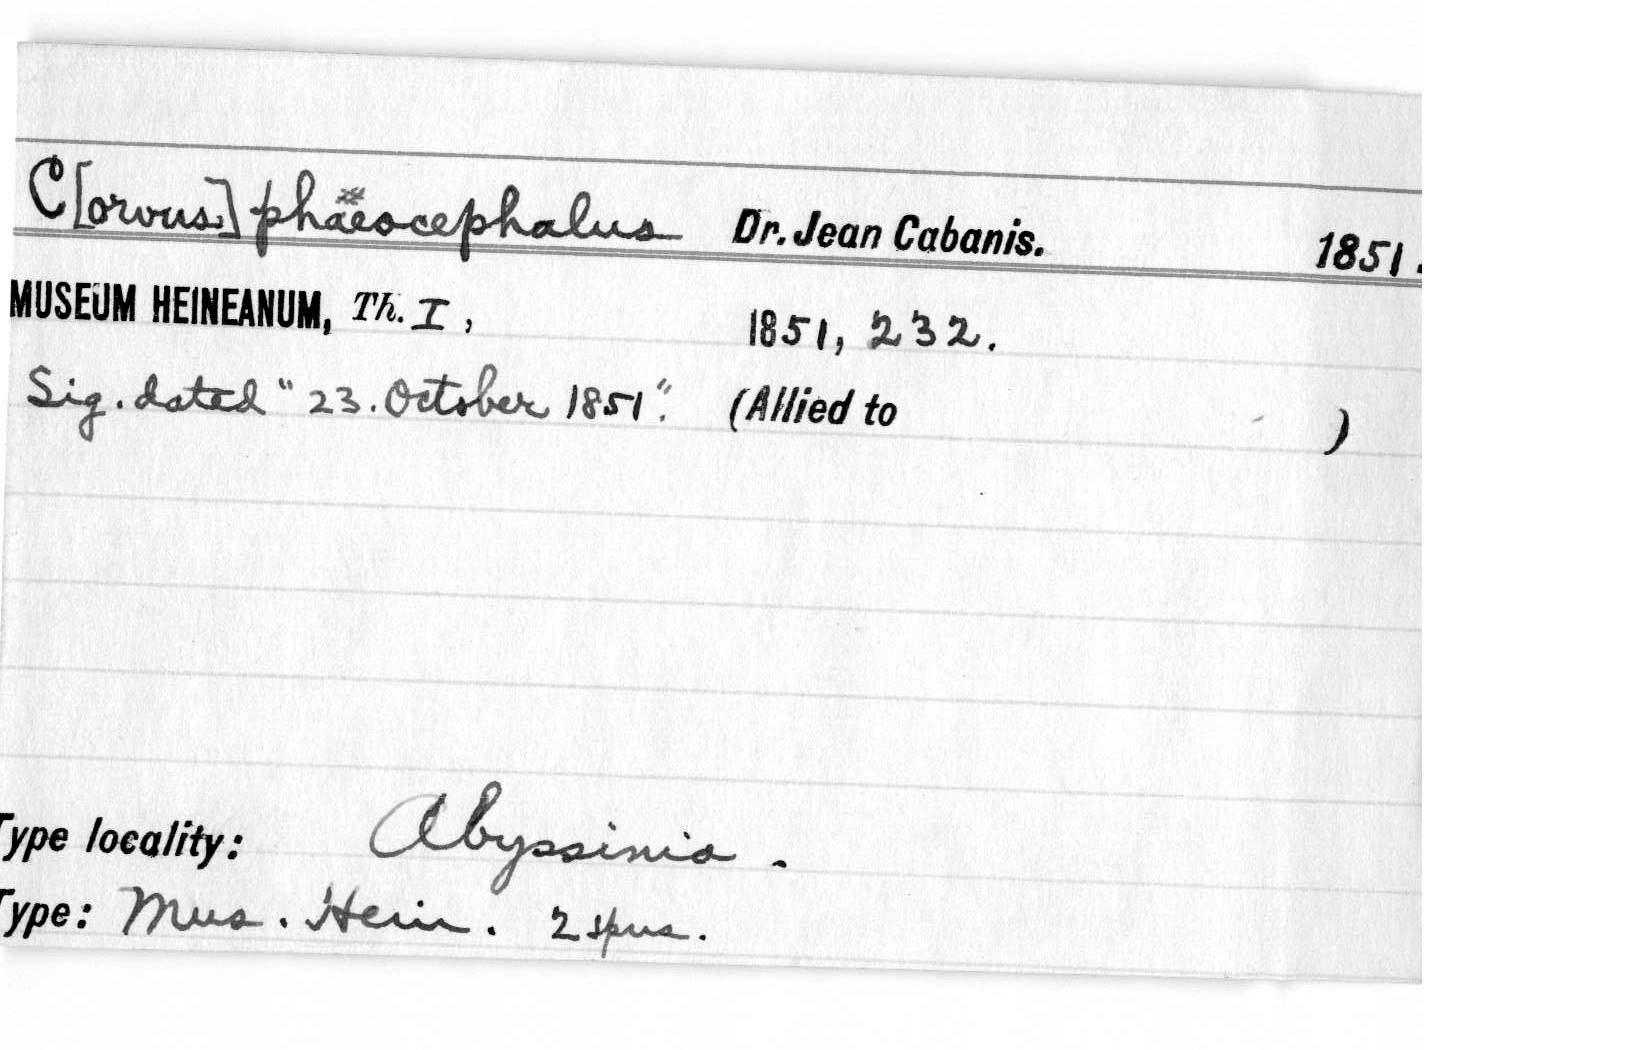 C[orvus] phaeocephalus Dr. Jean Cabanis. 1851.
MUSEUM HEINEANUM, Th. I, 1851, 232.
Sig. dated "23. October 1851". (Allied to )
Type locality: Abyssinia.
Type: Mus. Hein. 2 spns.